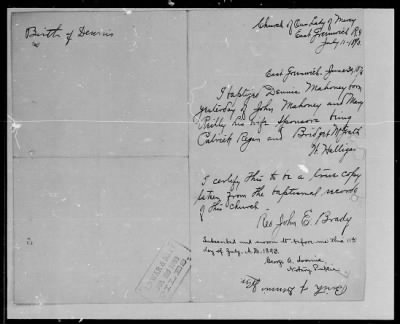 Birth of Dennis
Church of Our Lady of Mercy
East Greenwich R.I.
July 11-1898.
East Greenwich. June 24,
I baptized Dennis Mahoney born
yesterday of John Mahoney and Mary
Reilly his wife Sponsors being
Patrick Ryan and Bridget McGrath
W. Halligan
I certify this to be a true copy
taken from the baptismal records
of this church
Rev John E. Brady
Subscribed and sworn to before me this 11th
day of July, A.D. 1898.
George A.
Notary Public
Birth of Dennis